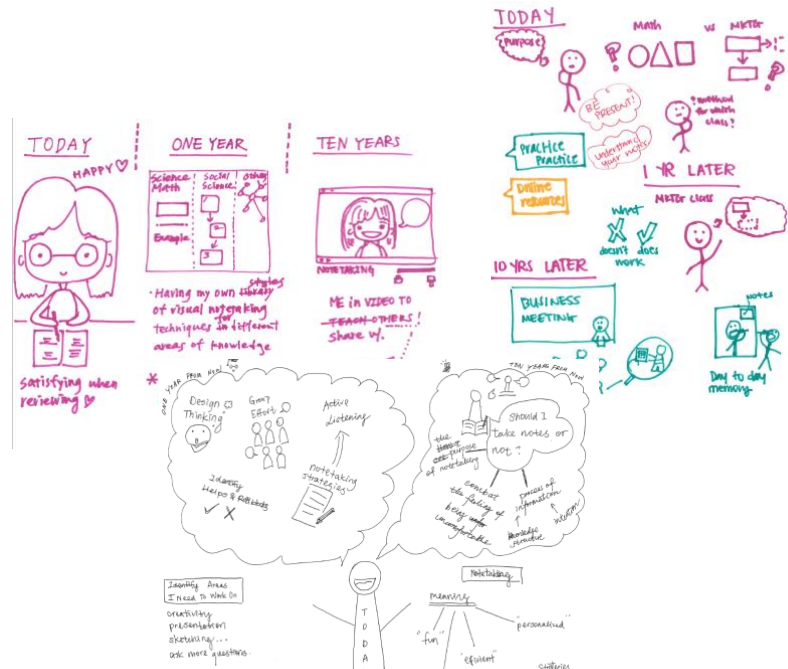 TODAY
HAPPY
Satisfying when
reviewing
ONE YEAR
Science
Math
Example
Social
Science
other
1
2
3
styles
• Having my own library
of visual notetaking
for
techniques in different
areas of knowledge
TEN YEARS
NOTETAKING
ME in VIDEO TO
TEACH OTHERS!
share w/.
TODAY
Purpose
?
Math
vs
MKTGr
?
BE
PRESENT!
? method
for which
class?
PRACTICE
PRACTICE
Understand
your notes
Online
resources
1 YR LATER
MKTGr class
What
doesn't does
work
10 YRS LATER
BUSINESS
MEETING
NOTES
Day to day
memory
*
ONE YEAR FROM NOW
Design
Thinking
Group
Effort
Active
Listening
Identify
Helps &
notetaking
strategies
TEN YEARS FROM NOW
Should I
take notes or
not?
the
purpose
of notetaking
combat
the feeling of
being
uncomfortable
process of
information
knowledge
structure
intuition
Identify Areas
I Need To Work On
creativity
presentation
sketching...
ask more questions.
TODA
Notetaking
meaning
"fun"
"efficient"
"personalised"